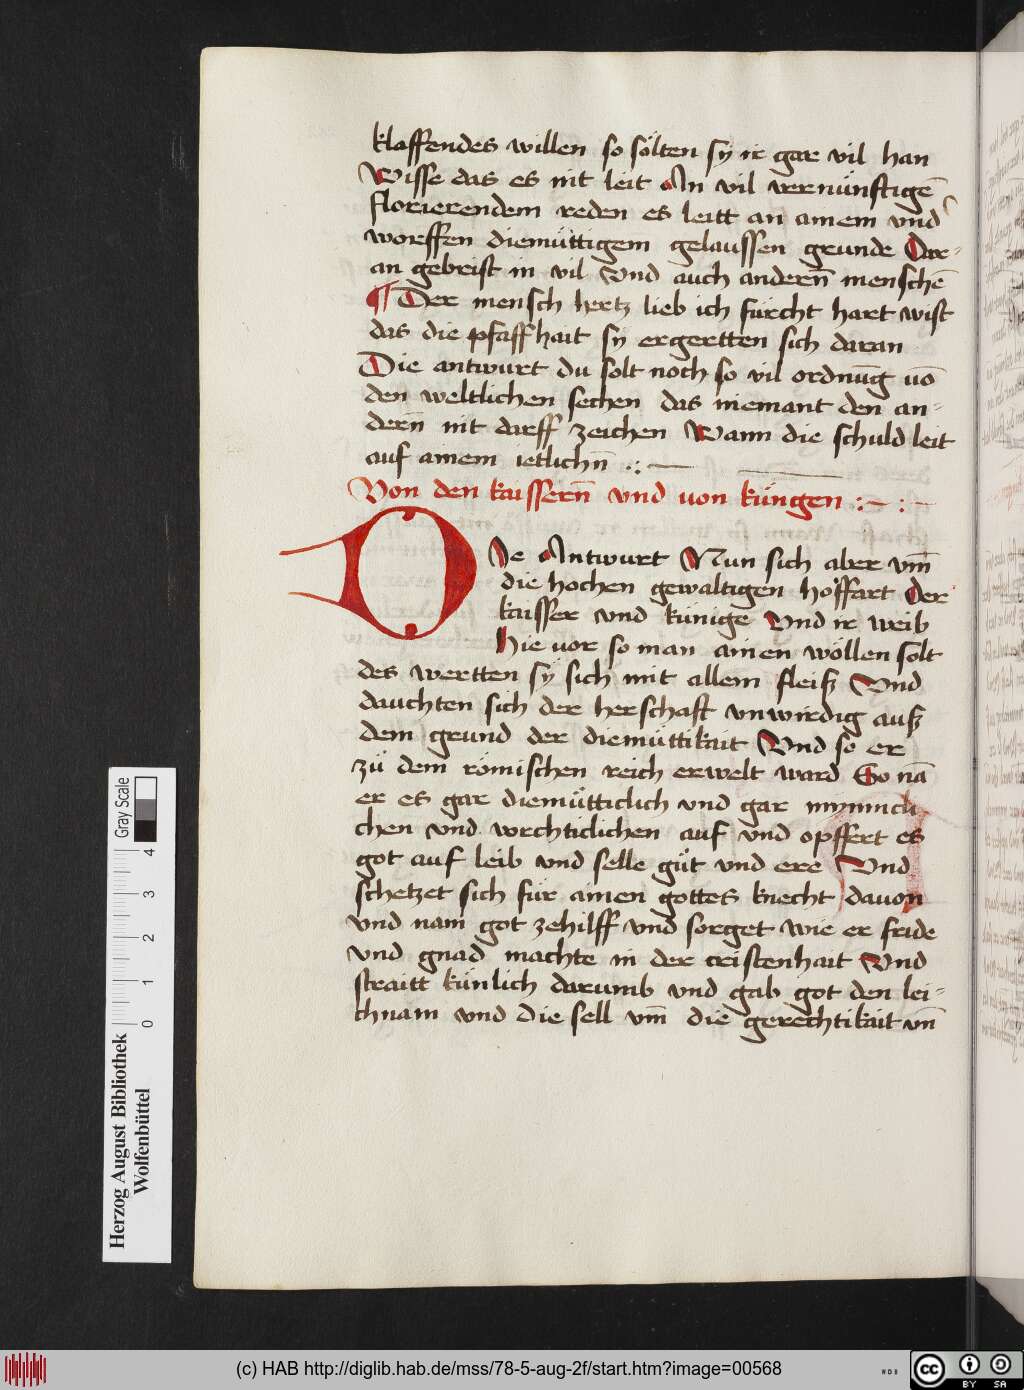 klaffendes willen so sölten sy ir gar vil han
Wisse das es nit leit An vil vernünftigē
florierendem reden es leitt an ainem vnd
worffen diemüttigem gelaussen grunde Dar-
an gebrist in vil Vnd auch andern̄ menschē
¶ Der mensch hertz lieb ich fürcht hart wist
das die pfaffhait sy ergertten sich daran
Die antwurt du solt noch so vil ordnūg vō
den weltlichen sechen das niemant den an-
dern̄ nit darff zeichen Wann die schuld leit
auf ainem ietlichn̄
Von den kaissern̄ vnd von küngen
DJe Antwurt Nun sich aber vm̄
die hochen gewaltigen hoffart Der
kaisser vnd künige Vnd ir weib
hie vor so man ainen wöllen solt
des wertten sy sich mit allem fleiß Vnd
dauchten sich der herschaft vnwirdig auß
dem grund der diemüttikait Vnd so er
zü dem römischen reich erwelt ward So nā
er es gar diemütticlich vnd gar mynnicli-
chen vnd vorchticlichen auf vnd opffert es
got auf leib vnd selle güt vnd ere Vnd
schetzet sich für ainen gottes knecht davon
vnd nam got zehilff vnd sorget wie er fride
vnd gnad machte in der cristenhait Vnd
straitt künlich darumb vnd gab got den lei-
chnam vnd die sell vm̄ die gerechtikait vn̄
Herzog August Bibliothek
Wolfenbüttel
0 1 2 3 4
Gray Scale
(c) HAB http://diglib.hab.de/mss/78-5-aug-2f/start.htm?image=00568
WDB
cc BY SA